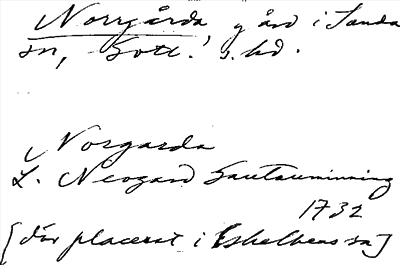 Norrgårda gård i Sanda
sn, Gotl. s. hd.
Norgarda
L. Neogard Gautauminning
1732
[där placerat i Eskelhems sn]